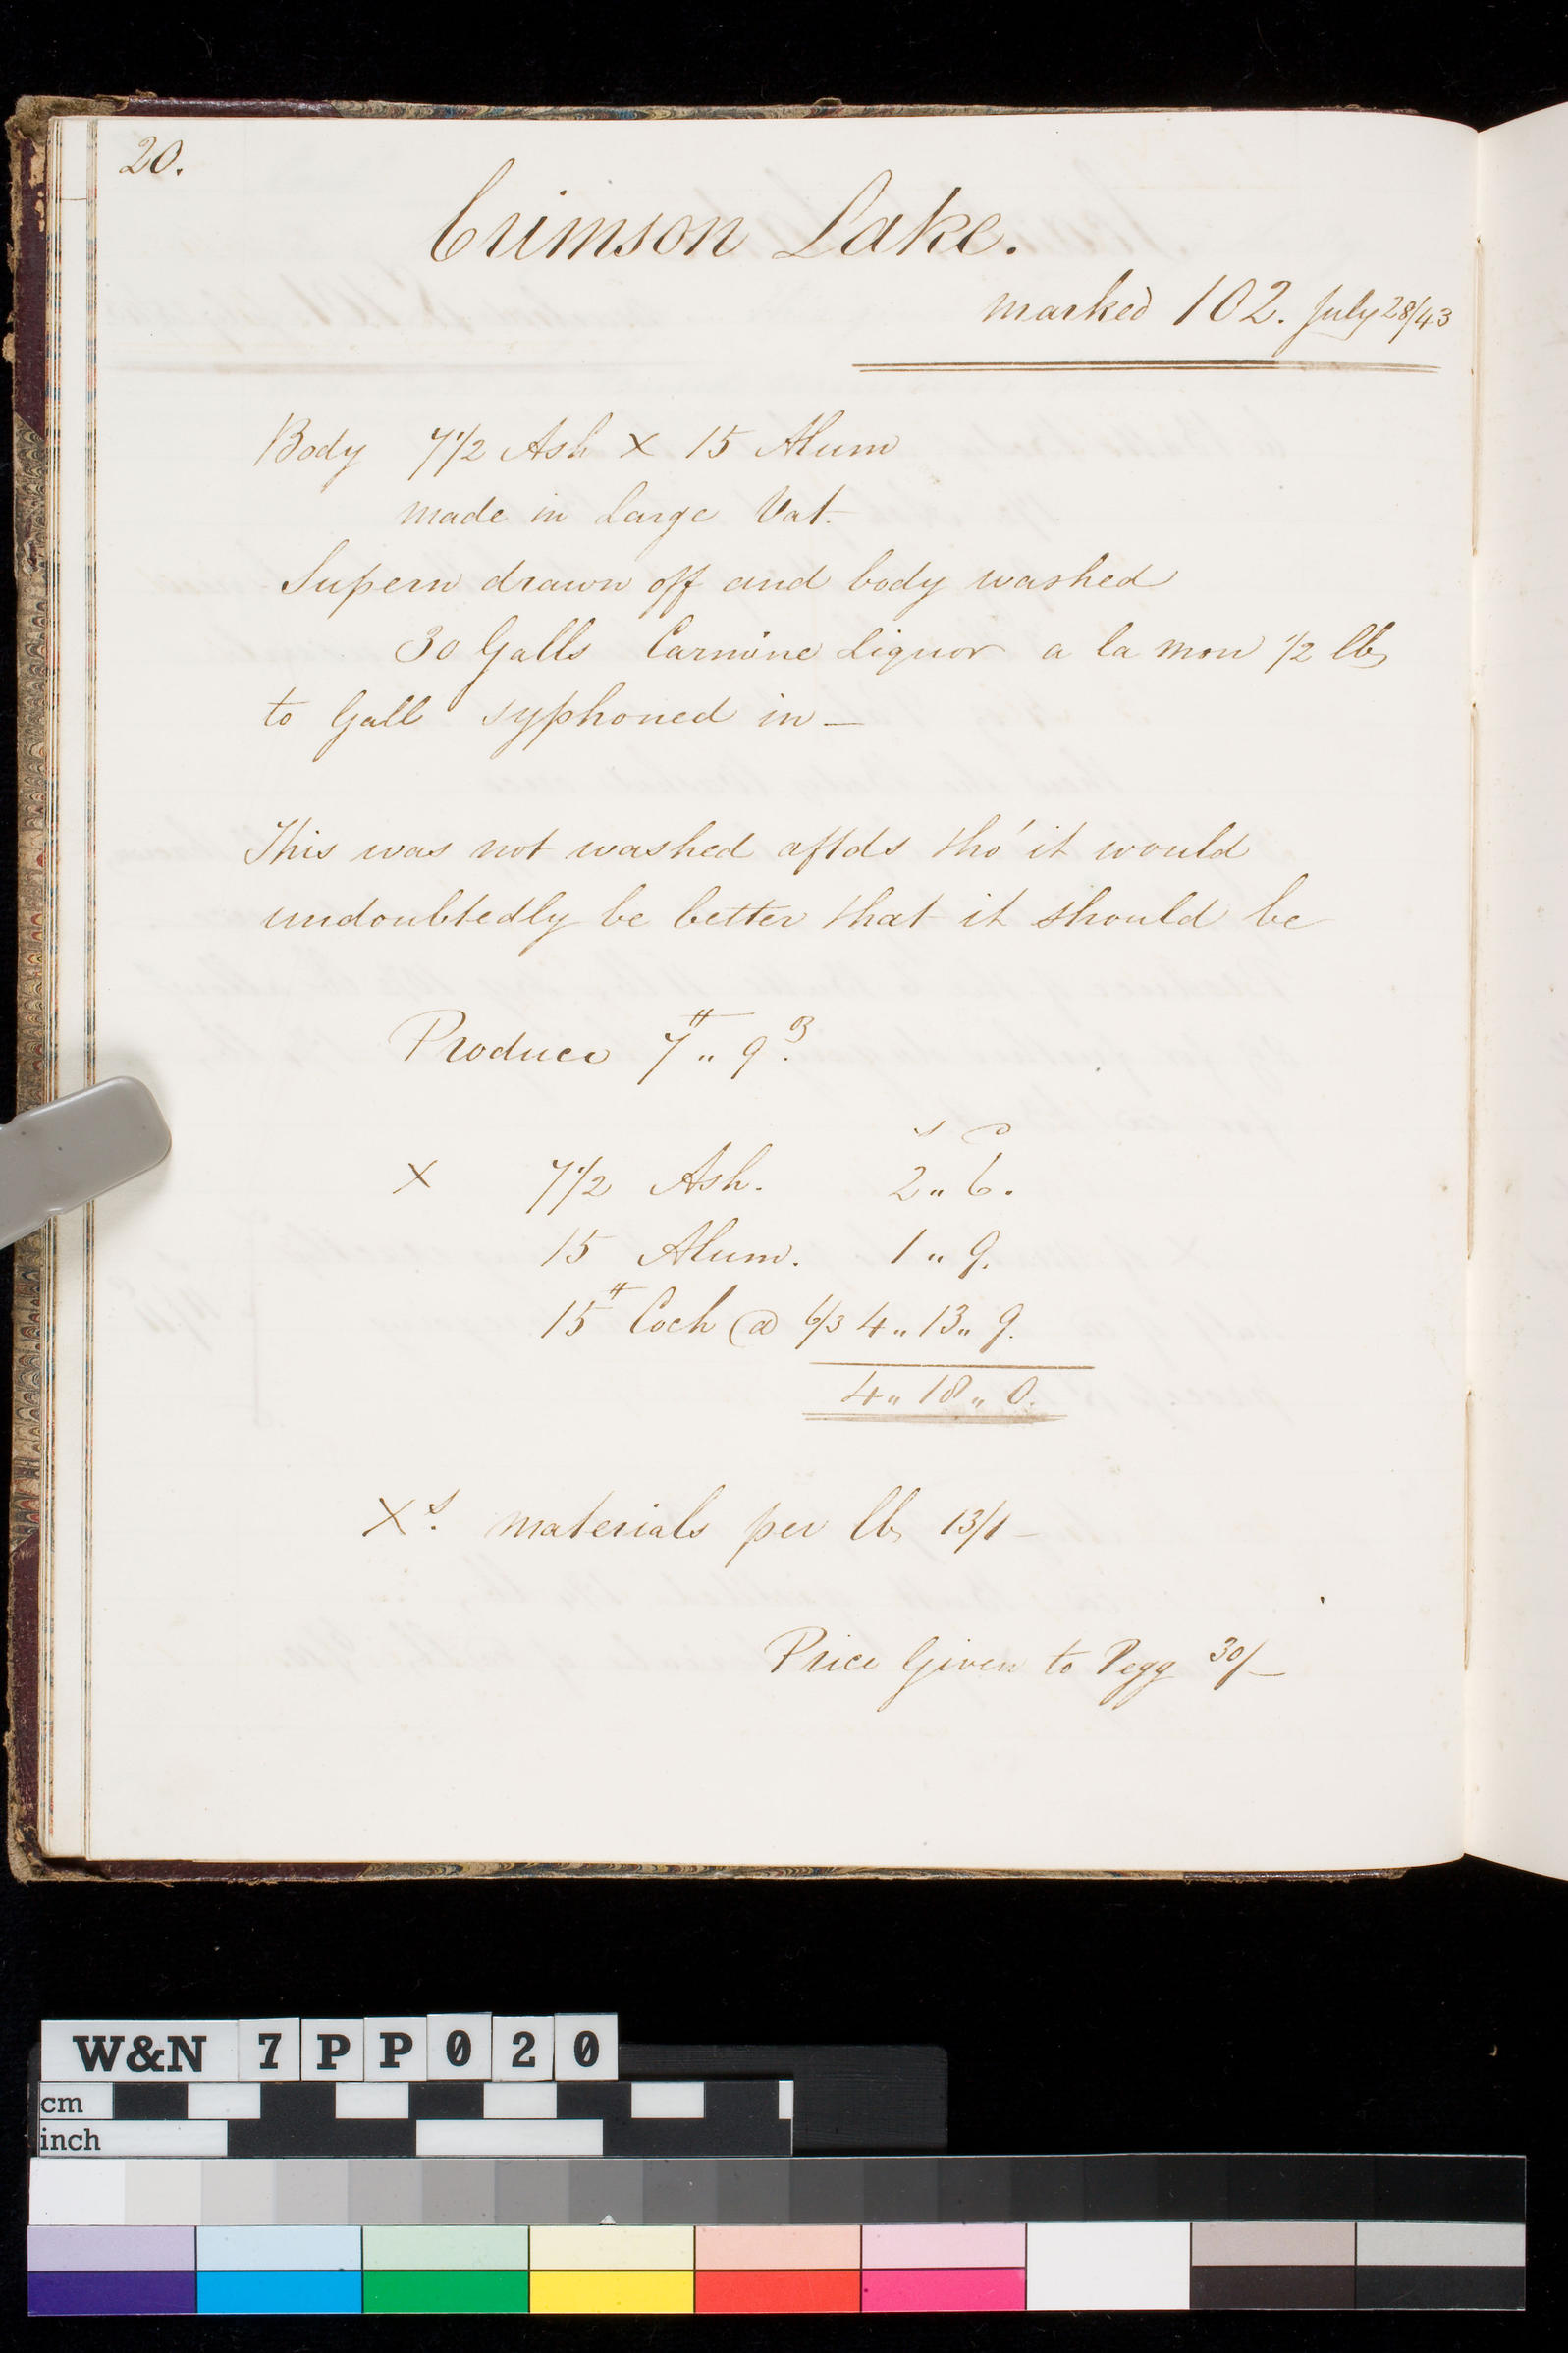 20.
Crimson Lake.
marked 102. July 28/43
Body 7 1/2 Ash X 15 Alum
made in Large Vat.
Supern drawn off and body washed
30 Galls Carmine Liquor a la mon 1/2 lb
to Gall syphoned in —
This was not washed aftds tho' it would
undoubtedly be better that it should be
Produce 7 lb „ 9 ℥.
s d
X 7 1/2 Ash. 2 „ 6.
15 Alum. 1 „ 9.
15 lb Coch @ 6/3 4 „ 13 „ 9.
4 „ 18 „ 0.
Xs. materials per lb 13/1 –
Price Given to Pegg 30/–
W&N 7PP020
cm
inch